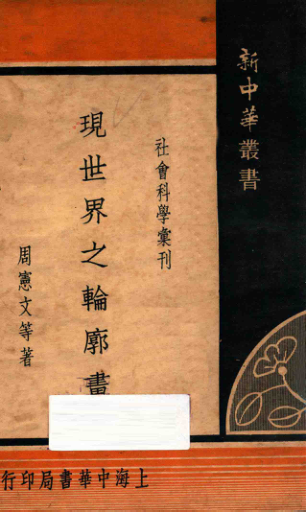 新中華叢書
社會科學彙刊
現世界之輪廓畫
周憲文等著
上海中華書局印行